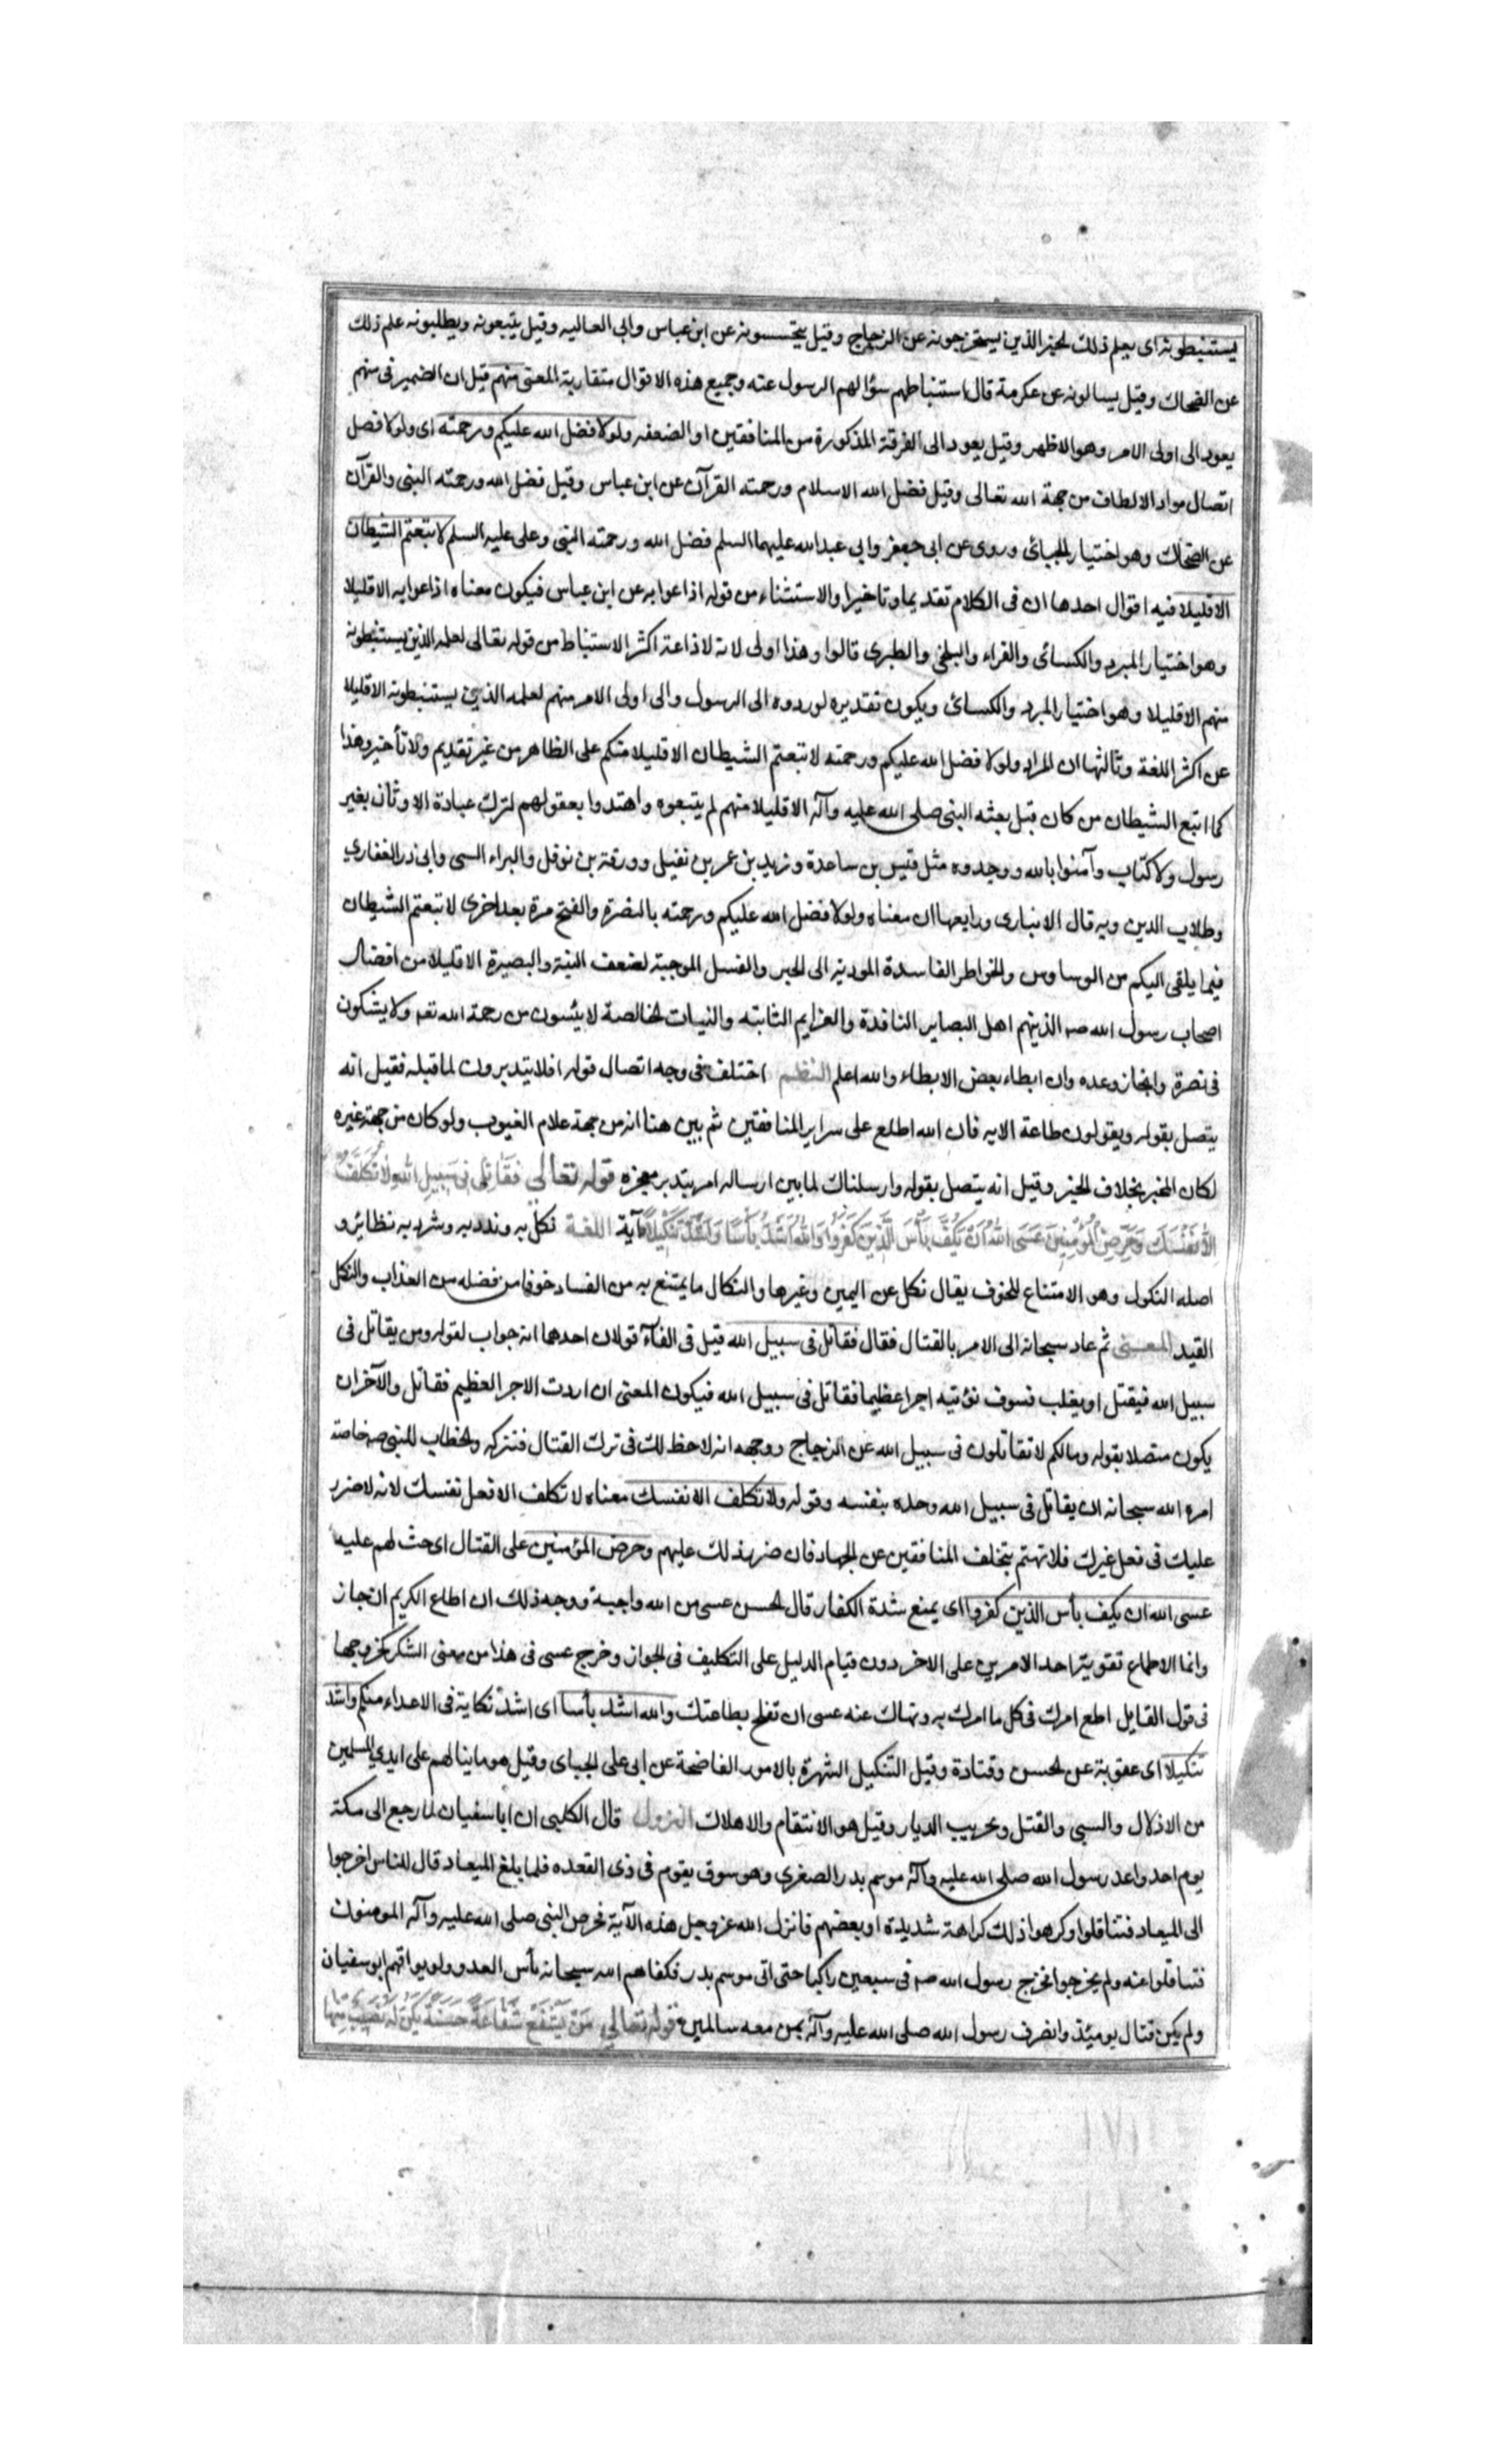 يستنبطونه اى يعلم ذلك الخبر الذين يستخرجونه عن الزجاج وقيل يتحسسونه عن ابن عباس وابى العاليه وقيل يتبعونه ويطلبونه علم ذلك
عن الضحاك وقيل يسالونه عن عكرمة قال استنباطهم سؤالهم الرسول عنه وجميع هذه الاقوال متقاربة المعنى منهم قيل ان الضمير فى منهم
يعود الى اولى الامر وهو الاظهر وقيل يعود الى الفرقة المذكورة من المنافقين او الضعفه ولولا فضل الله عليكم ورحمته اى ولولا فضل
اتصال مواد الالطاف من جهة الله تعالى وقيل فضل الله الاسلام ورحمته القرآن عن ابن عباس وقيل فضل الله ورحمته النبى والقرآن
عن الضحاك وهو اختيار الجبائى وروى عن ابى جعفر وابى عبدالله عليهما السلم فضل الله ورحمته النبى وعلى عليه السلم لاتبعتم الشيطان
الا قليلا فيه اقوال احدها ان فى الكلام تقديما وتاخيرا والاستثناء من قوله اذاعوا به عن ابن عباس فيكون معناه اذاعوا به الا قليلا
وهو اختيار المبرد والكسائى والفراء والبلخى والطبرى قالوا وهذا اولى لانه لاذاعة اكثر الاستنباط من قوله تعالى لعلمه الذين يستنبطونه
منهم الا قليلا وهو اختيار المبرد والكسائى ويكون تقديره لو ردوه الى الرسول والى اولى الامر منهم لعلمه الذين يستنبطونه الا قليلا
عن اكثر اللغة وثالثها ان المراد ولولا فضل الله عليكم ورحمته لاتبعتم الشيطان الا قليلا منكم على الظاهر من غير تقديم ولا تأخير وهذا
كما اتبع الشيطان من كان قبل بعثه النبى صلى الله عليه وآله الا قليلا منهم لم يتبعوه واهتدوا بعقولهم لترك عبادة الاوثان بغير
رسول ولا كتاب وآمنوا بالله ووحدوه مثل قيس بن ساعدة وزيد بن عمر بن نفيل وورقة بن نوفل والبراء السى وابى ذر الغفارى
وطلاب الدين وبه قال الانبارى ورابعها ان معناه ولولا فضل الله عليكم ورحمته بالنصرة والفتح مرة بعد اخرى لاتبعتم الشيطان
فيما يلقى اليكم من الوساوس والخواطر الفاسدة المودية الى الجبر والفسل الموجبة لضعف النية والبصيرة الا قليلا من افضال
اصحاب رسول الله صه الذينهم اهل البصاير النافدة والعزايم الثابته والنيات الخالصة لا يئسون من رحمة الله تعه ولا يشكون
فى نصرة وانجاز وعده وان ابطاء بعض الابطاء والله اعلم النظم اختلف فى وجه اتصال قوله افلا يتدبرون لما قبله فقيل انه
يتصل بقوله ويقولون طاعة الايه فان الله اطلع على سراير المنافقين ثم بين هنا انه من جهة علام الغيوب ولو كان من جهة غيره
لكان المخبر بخلاف الخبر وقيل انه يتصل بقوله وارسلناك لما بين ارساله امر بتدبر معجزه قوله تعالى فَقَاتِلْ فى سَبِيلِ اللهِ لا تُكَلَّفُ
اِلَّا نَفْسَكَ وَحَرِّضِ الْمُؤْمِنِينَ عَسَى اللهُ اَنْ يَكُفَّ بَأْسَ الَّذِينَ كَفَرُوا وَاللهُ اَشَدُّ بَأْسًا وَاَشَدُّ تَنْكِيلًا آية اللغة نكل به وندد به وشرد به نظائر و
اصله النكول وهو الامتناع للخوف يقال نكل عن اليمين وغيرها والنكال ما يمتنع به من الفساد خوفا من فضله من العذاب والنكل
القيد المعنى ثم عاد سبحانه الى الامر بالقتال فقال فقاتل فى سبيل الله قيل فى الفآء قولان احدهما انه جواب لقوله ومن يقاتل فى
سبيل الله فيقتل او يغلب فسوف نؤتيه اجرا عظيما فقاتل فى سبيل الله فيكون المعنى ان اردت الاجر العظيم فقاتل والآخر ان
يكون متصلا بقوله ومالكم لا تقاتلون فى سبيل الله عن الزجاج ووجهه انه لا حظ لك فى ترك القتال فنتركه والخطاب للنبى صه خاصة
امره الله سبحانه ان يقاتل فى سبيل الله وحده بنفسه وقوله ولا تكلف الا نفسك معناه لا تكلف الا فعل نفسك لانه لا ضرر
عليك فى فعل غيرك فلا تهتم بتخلف المنافقين عن الجهاد فان ضر ذلك عليهم وحرض المؤمنين على القتال اى حث لهم عليه
عسى الله ان يكف بأس الذين كفروا اى يمنع شدة الكفار قال الحسن عسى من الله واجبة ووجه ذلك ان اطلاع الكريم انجاز
وانما الاطماع تقوية احد الامرين على الاخر دون قيام الدليل على التكليف فى الجواز وخرج عسى فى هذا من معنى الشكر كخروجها
فى قول القايل اطع امرك فى كل ما امرك به ونهاك عنه عسى ان تفلح بطاعتك والله اشد بأسا اى اشد نكاية فى الاعداء منكم واشد
تنكيلا اى عقوبة عن الحسن وقتادة وقيل التنكيل الشهرة بالامور الفاضحة عن ابى على الجباى وقيل هو ما ينالهم على ايدى المسلمين
من الاذلال والسبى والقتل وتخريب الديار وقيل هو الانتقام والاهلاك النزول قال الكلبى ان اباسفيان لما رجع الى مكة
يوم احد واعد رسول الله صلى الله عليه وآله موسم بدر الصغرى وهو سوق يقوم فى ذى القعده فلما بلغ الميعاد قال للناس اخرجوا
الى الميعاد فتثاقلوا وكرهوا ذلك كراهة شديدة او بعضهم فانزل الله عزوجل هذه الآية فحرض النبى صلى الله عليه وآله المومنون
فتثاقلوا عنه ولم يخرجوا فخرج رسول الله صه فى سبعين راكبا حتى اتى موسم بدر فكفاهم الله سبحانه بأس العدو ولم يوافهم ابوسفيان
ولم يكن قتال يومئذ وانصرف رسول الله صلى الله عليه وآله بمن معه سالمين قوله تعالى مَنْ يَشْفَعْ شَفَاعَةً حَسَنَةً يَكُنْ لَهُ نَصِيبٌ مِنْهَا